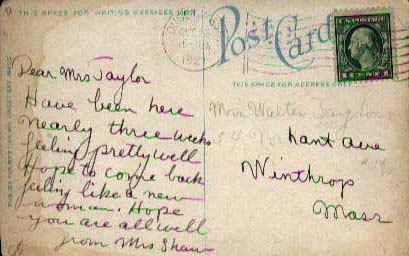 THIS SPACE FOR WRITING MESSAGES
Post Card
THIS SPACE FOR ADDRESS ONLY
Dear Mrs Taylor
Have been here
nearly three weeks
feeling pretty well
Hope to come back
feeling like a new
woman. Hope
you are all well
from Mrs Shaw
Mrs Walter
54
hant ave
Winthrop
Mass